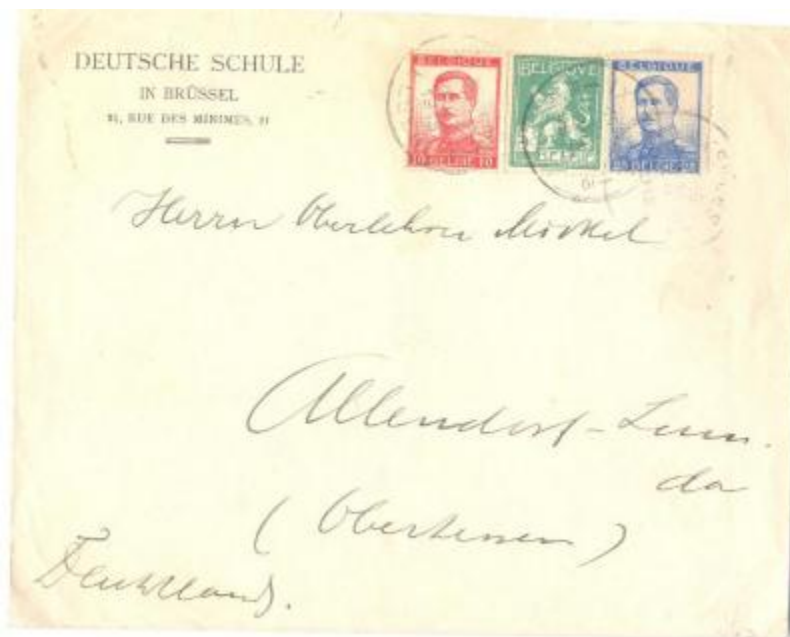 DEUTSCHE SCHULE
IN BRÜSSEL
21, RUE DES MINIMES, 21
BELGIQUE BELGIQUE BELGIQUE
10 BELGIË 10 BELGIË 25 BELGIË 25
Herrn Oberlehrer Möckel
Allendorf-Lum.
da
(Oberhessen)
Deutschland.